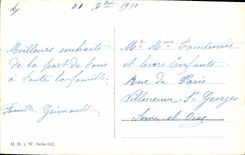 31 Xbre 1910
Meilleurs souhaits
de la part de tous
à toute la famille
Famille Grimault
Mr Mme Tainturier
et leurs Enfants
Rue de Paris
Villeneuve St Georges
Seine et Oise
H. H. i. W. Serie 642.